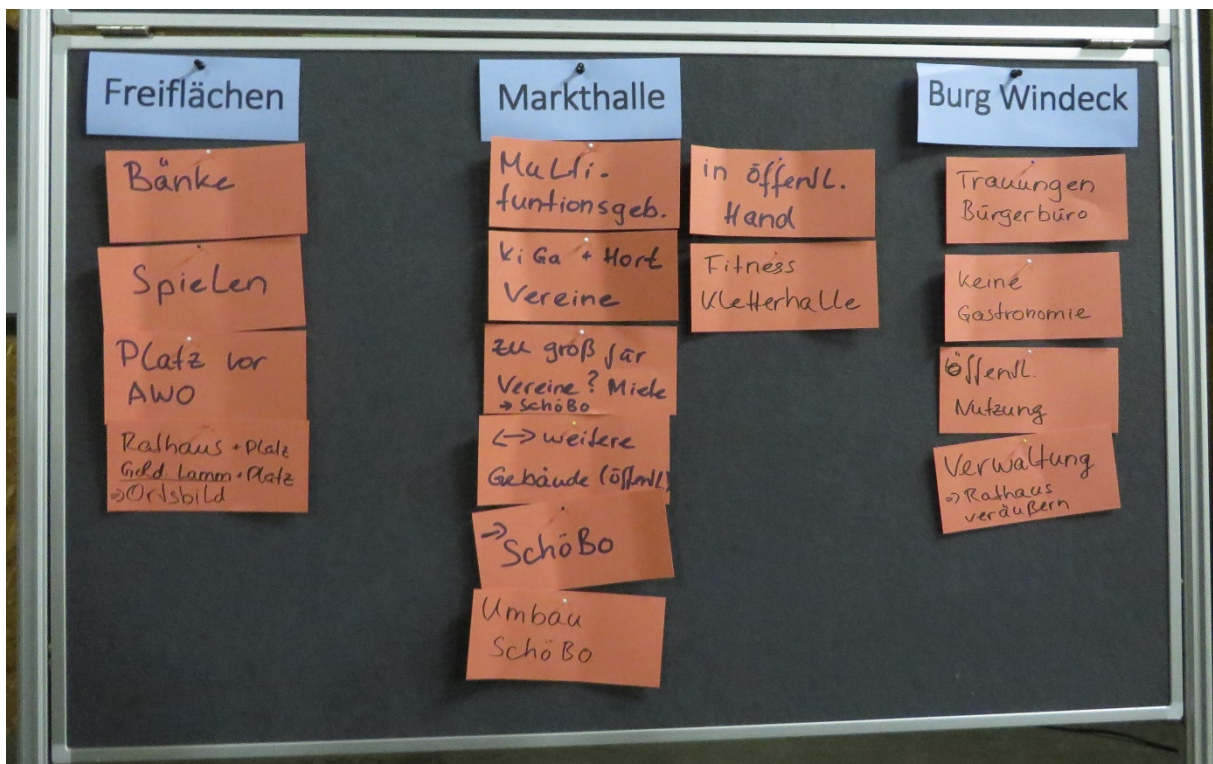 Freiflächen
Bänke
Spielen
Platz vor
AWO
Rathaus + Platz
Gold. Lamm + Platz
⇒ Ortsbild
Markthalle
Multi-
funtionsgeb.
KiGa + Hort
Vereine
zu groß für
Vereine? Miete
→ SchöBo
<-> weitere
Gebäude (öffentl.)
⇒ SchöBo
Umbau
SchöBo
in öffentl.
Hand
Fitness
Kletterhalle
Burg Windeck
Trauungen
Bürgerbüro
Keine
Gastronomie
Öffentl.
Nutzung
Verwaltung
⇒ Rathaus
veräußern